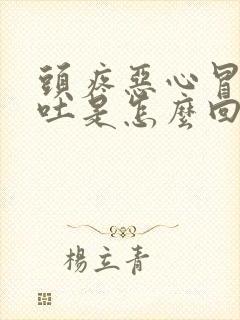 頭疼惡心冒
吐是怎麼回
楊立青